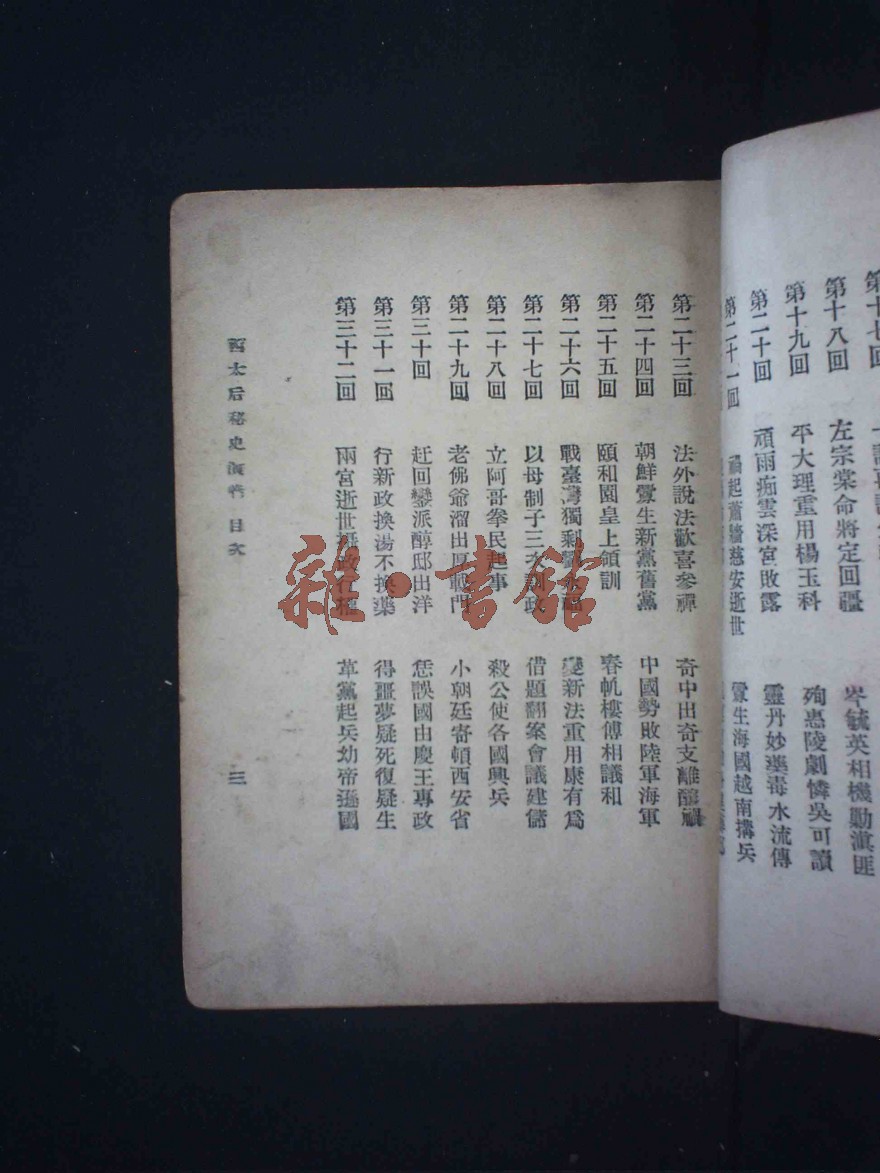 左宗棠命將定回疆 岑毓英相機勦滇匪
第十八回
第十九回 平大理重用楊玉科 殉惠陵劇憐吳可讀
第二十回 頑雨痴雲深宮敗露 靈丹妙藥毒水流傳
第二十一回 禍起蕭牆慈安逝世 釁生海國越南搆兵
第二十三回 法外說法歡喜參禪 奇中出奇支離釀禍
第二十四回 朝鮮釁生新黨舊黨 中國勢敗陸軍海軍
第二十五回 頤和園皇上領訓 春帆樓傅相議和
第二十六回 戰臺灣獨剩劉永福 變新法重用康有爲
第二十七回 以母制子三次訓政 借題翻案會議建儲
第二十八回 立阿哥拳民起事 殺公使各國興兵
第二十九回 老佛爺溜出厚載門 小朝廷寄頓西安省
第三十回 赶回鑾派醇邸出洋 恁誤國由慶王專政
第三十一回 行新政換湯不換藥 得噩夢疑死復疑生
第三十二回 兩宮逝世攝政行權 革黨起兵幼帝遜國
西太后秘史演義 目次
三
雜·書館